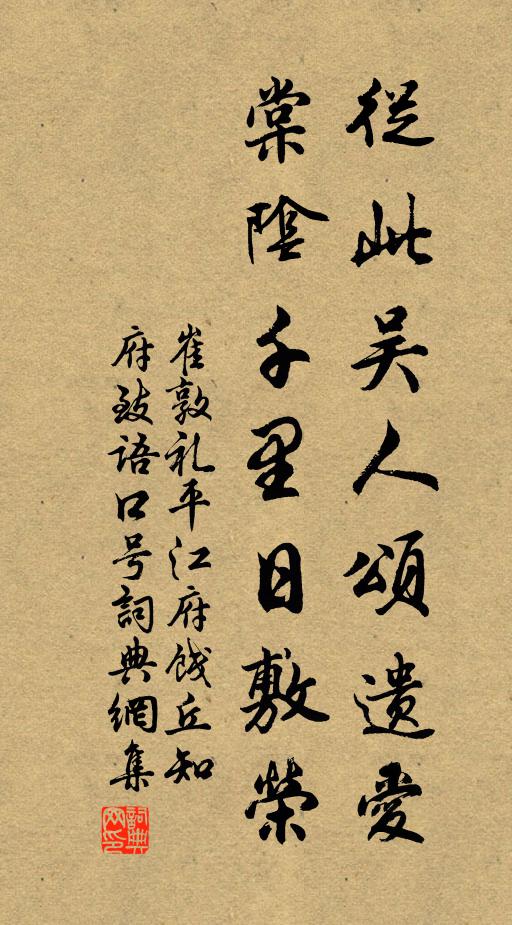 從此吴人頌遺愛
棠陰千里日敷榮
崔敦礼平江府餞丘知
府致語口号詞典網集
詞典
网印